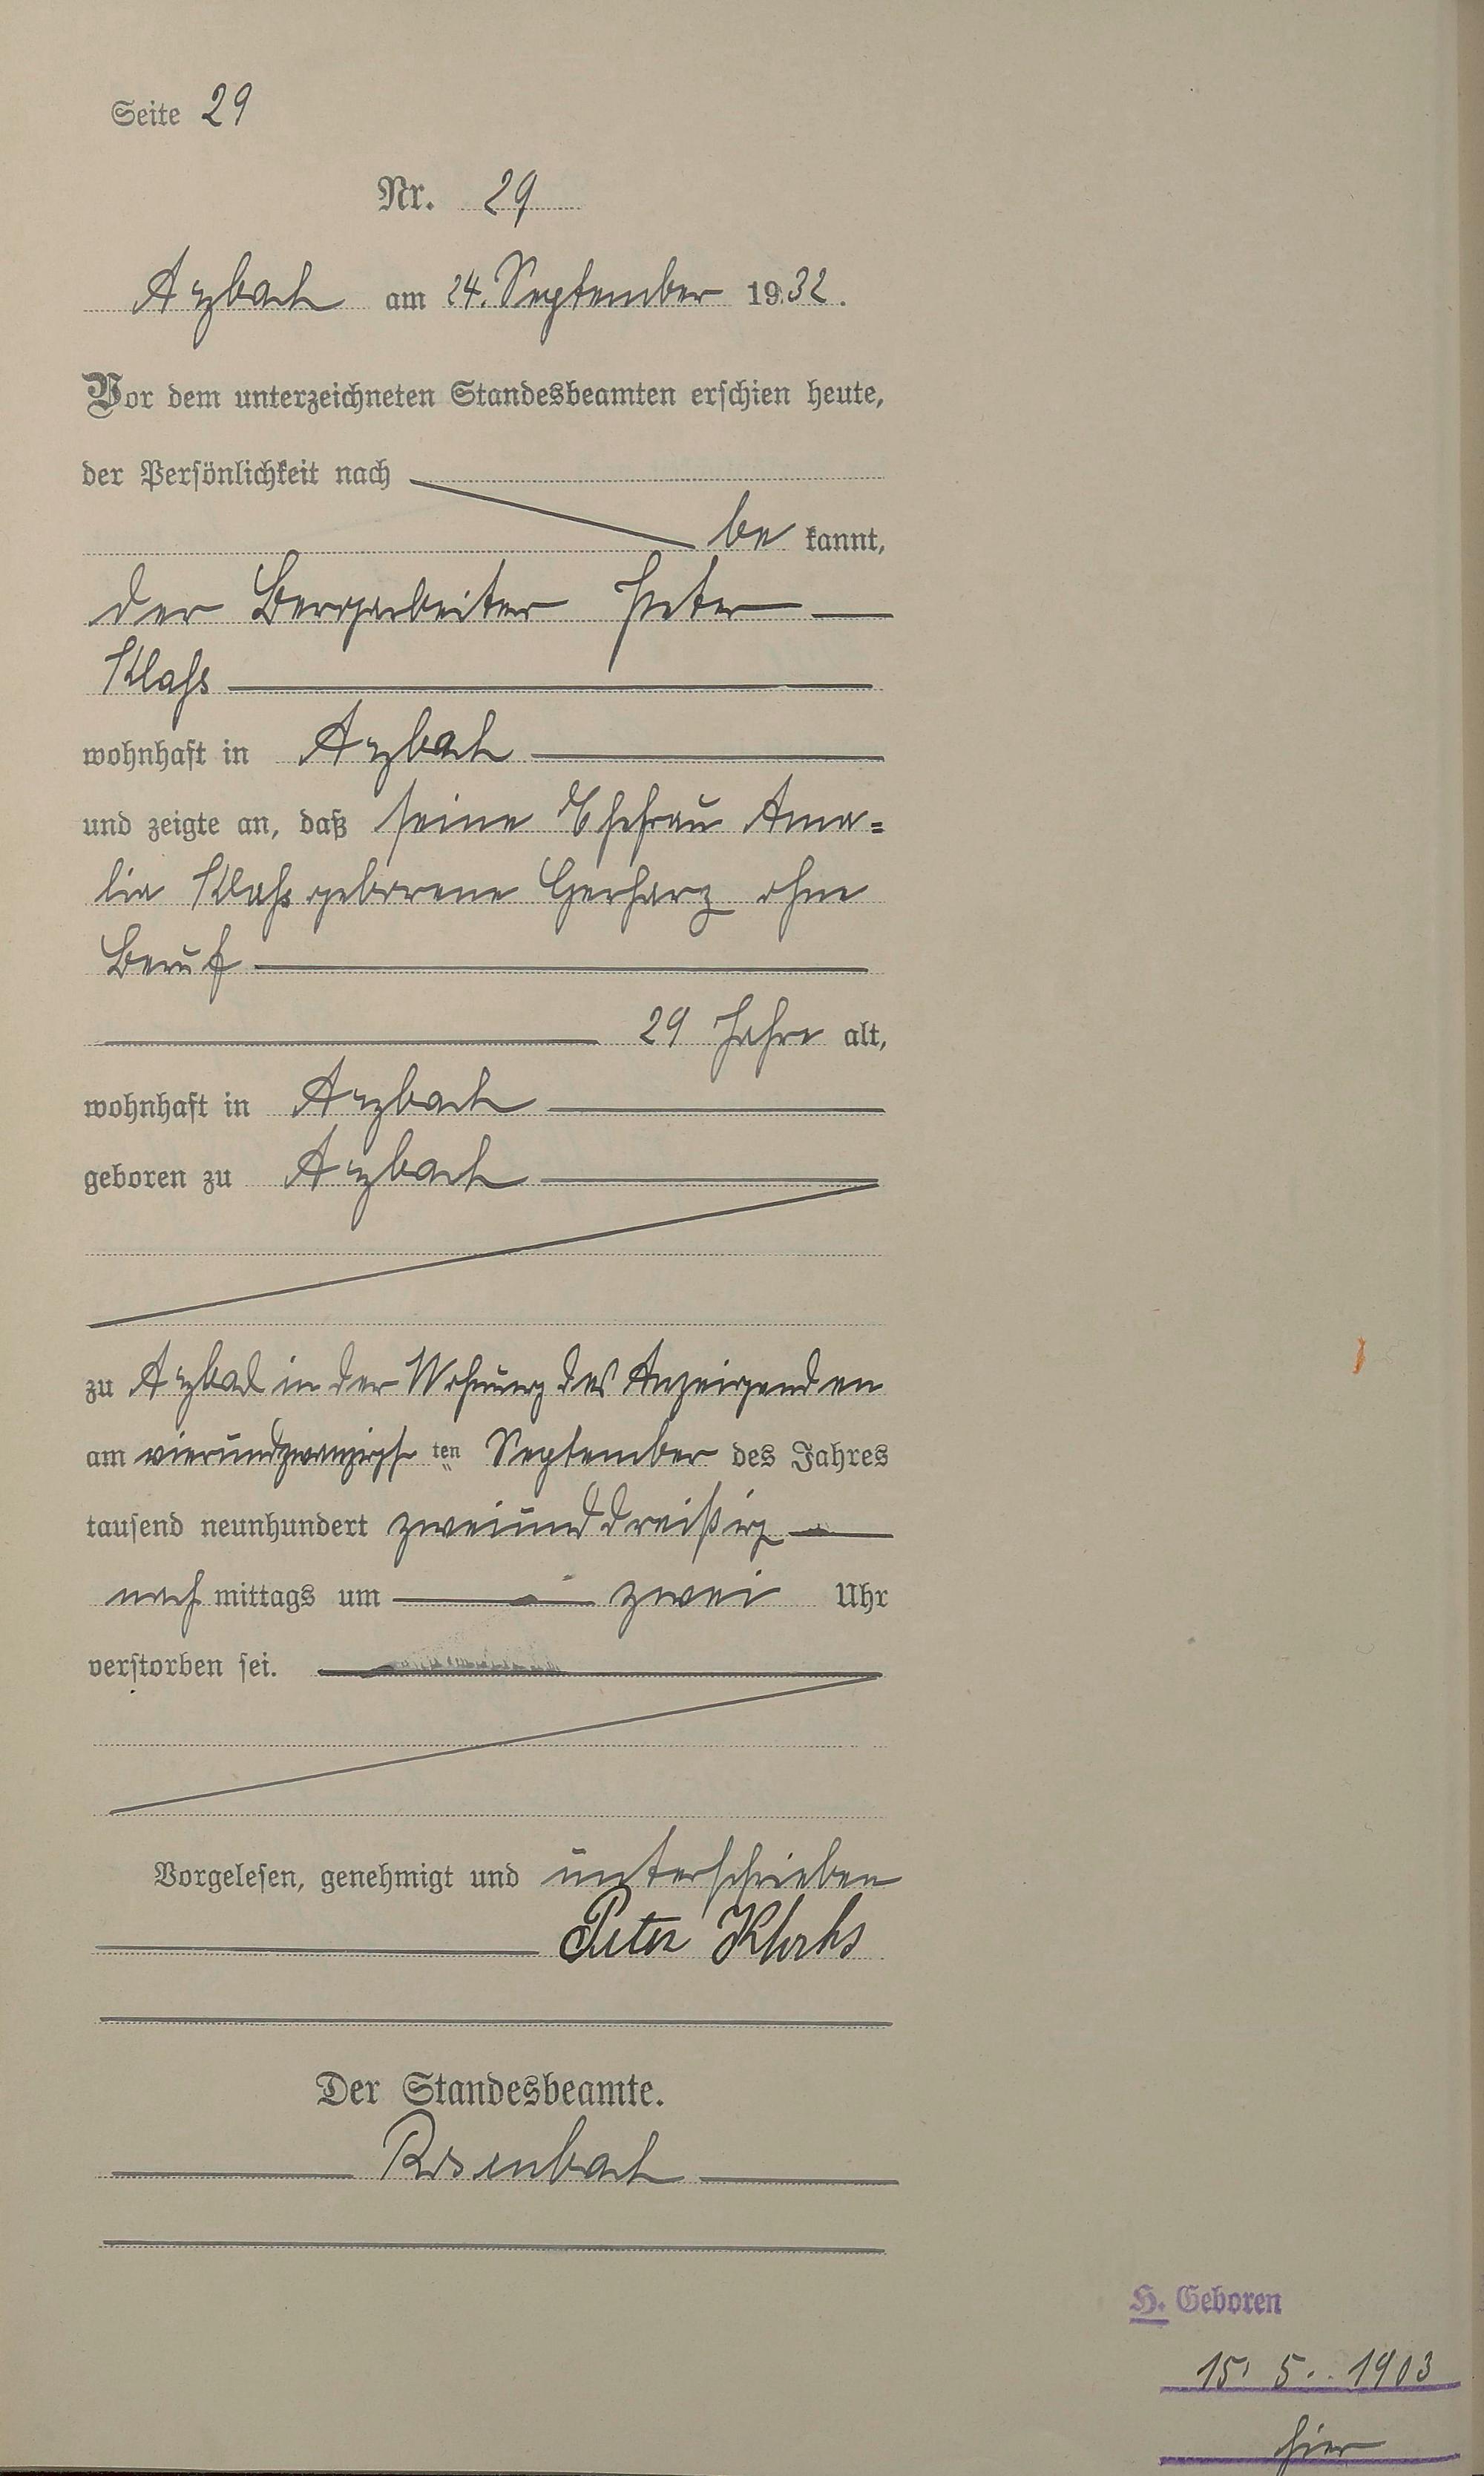 Seite 29
Nr. 29
Arzbach am 24. September 1932.
Vor dem unterzeichneten Standesbeamten erschien heute,
der Persönlichkeit nach
be kannt,
der Bergarbeiter Peter
Klahs
wohnhaft in Arzbach
und zeigte an, daß seine Ehefrau Ama=
lia Klahs geborene Gerharz ohne
Beruf
29 Jahre alt,
wohnhaft in Arzbach
geboren zu Arzbach
zu Arzbach in der Wohnung des Anzeigenden
am vierundzwanzigs ten September des Jahres
tausend neunhundert zweiunddreißig
nach mittags um zwei Uhr
verstorben sei.
Vorgelesen, genehmigt und unterschrieben
Peter Klahs
Der Standesbeamte.
Rosenbach
H. Geboren
15. 5. 1903
hier